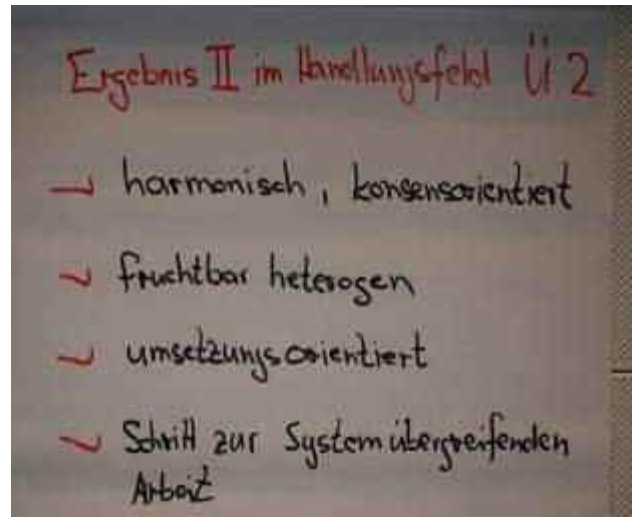 Ergebnis II im Handlungsfeld Ü 2
harmonisch, konsensorientiert
fruchtbar heterogen
umsetzungsorientiert
Schritt zur Systemübergreifenden
Arbeit